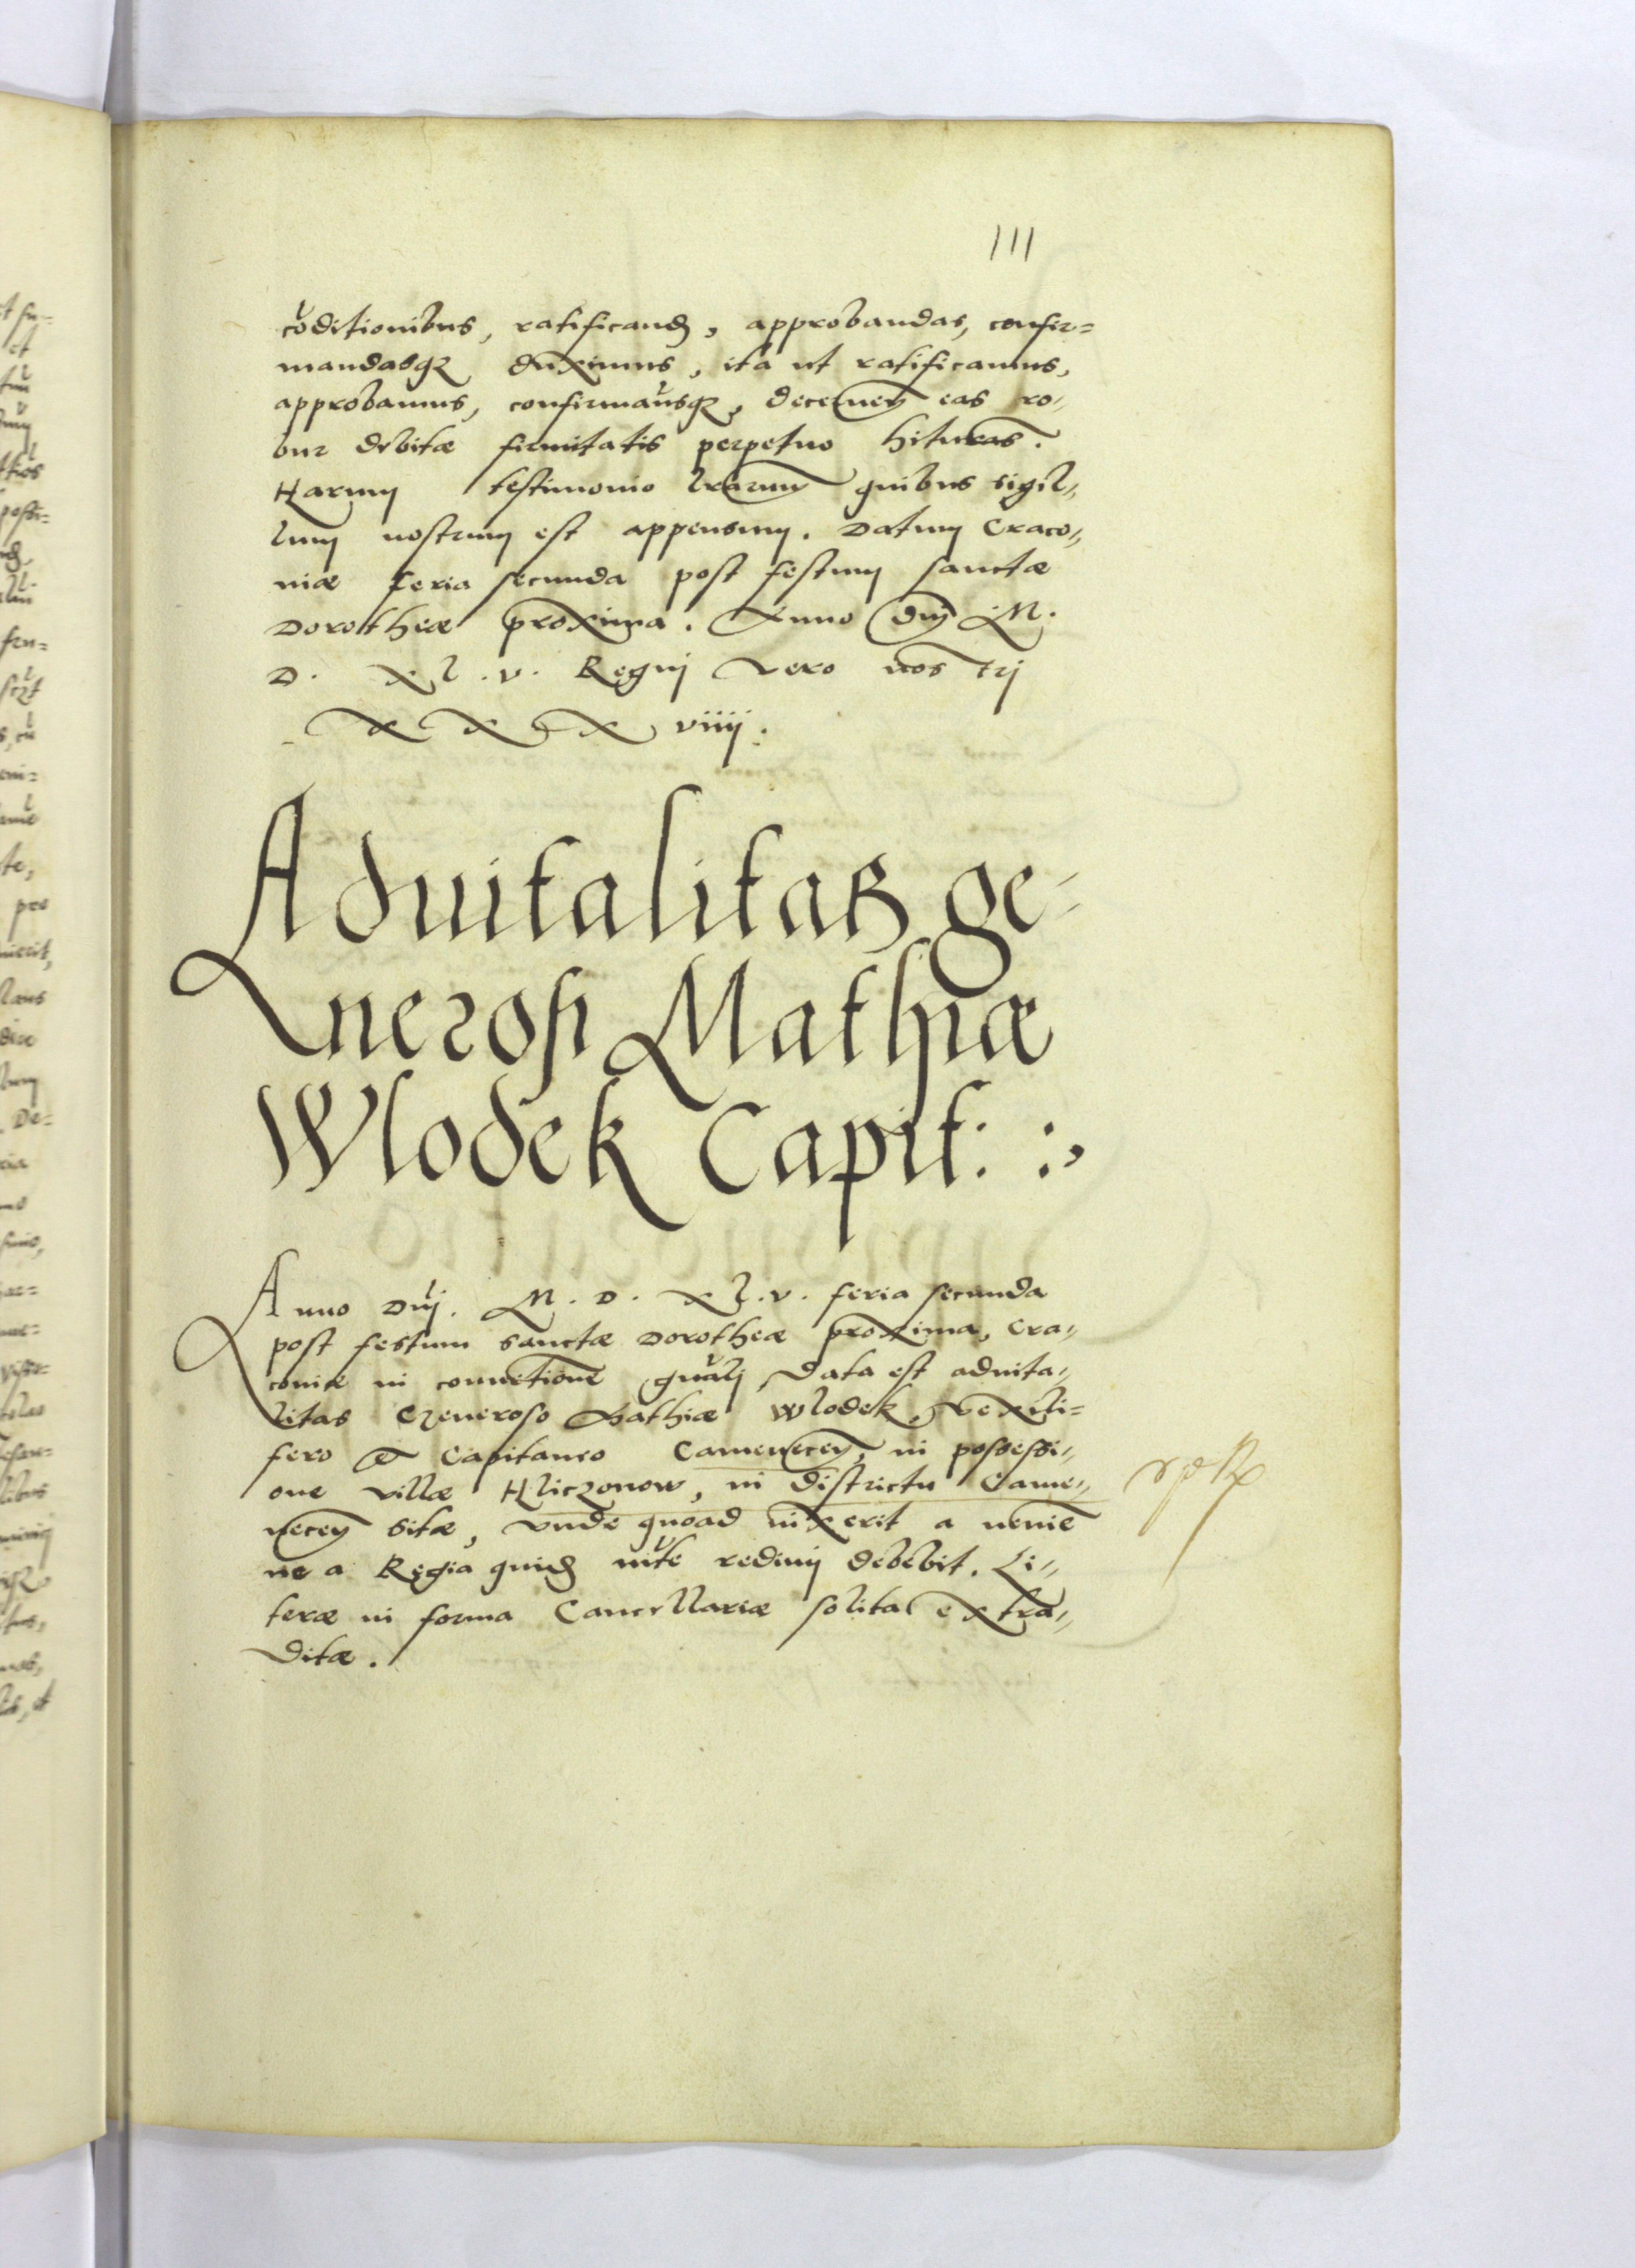 111
cōditionibus, ratificand, approbandas, confir=
mandasqz duximus, ita ut ratificamus,
approbamus, confirmaūsqz, decerneñ eas ro=
bur debitæ firmitatis perpetuo hituras.
Harum testimonio lrarum quibus sigil=
lum nostrum est appensum. Datum Craco=
niæ feria secunda post festum sanctæ
Dorotheæ proxima. Anno Dnj M.
D. XL.V. Regnj vero nostrj
XXXviiij.
Aduitalitas ge=
nerosi Mathiæ
Wlodek Capit: :
Anno Dnj. M. D. XL.V. feria secunda
post festum sanctæ Dorotheæ proxima, Cra=
couiæ in conuētione gnalj data est aduita=
litas Generoso Mathiæ Wlodek, Vexili=
fero et Capitaneo Cameneceñ, in possessi=
one villæ Hliczonow, in districtu Came=
neceñ sitæ, vnde quoad uixerit a nemīe
ne a Regia quid mte redimj debebit. Li=
teræ in forma Cancellariæ solita extra=
ditæ.